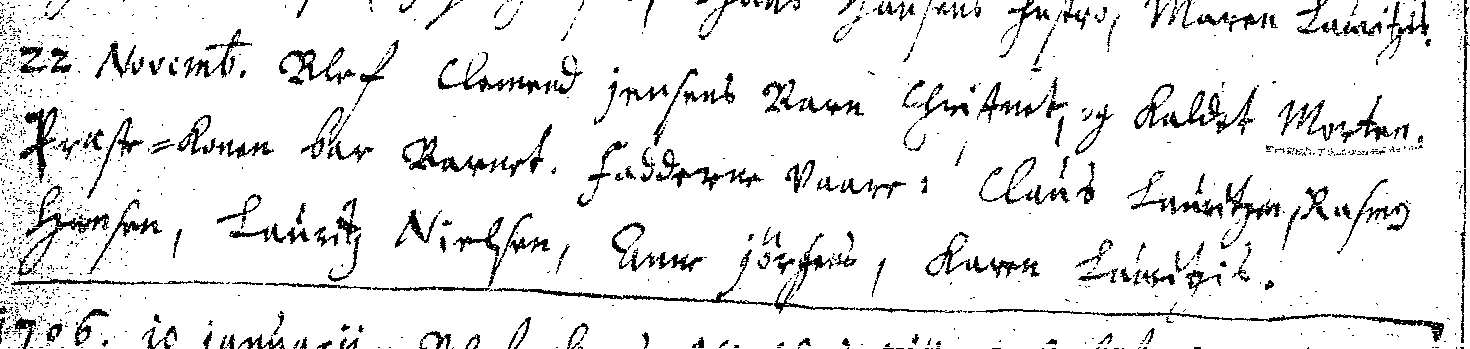 Hans Hansens hustro, Maren Lauritzis.
22 Novemb. Blef Clemend jensens Barn Christnet, og Kaldet Morten.
Præste=Konen bar Barnet. Fadderne Vaare: Claus Lauritzen, Rasmus
Hansen, Lauritz Nielsen, Anne jörgens, Karen Lauritzis.
1706. 10 januarii. Blef